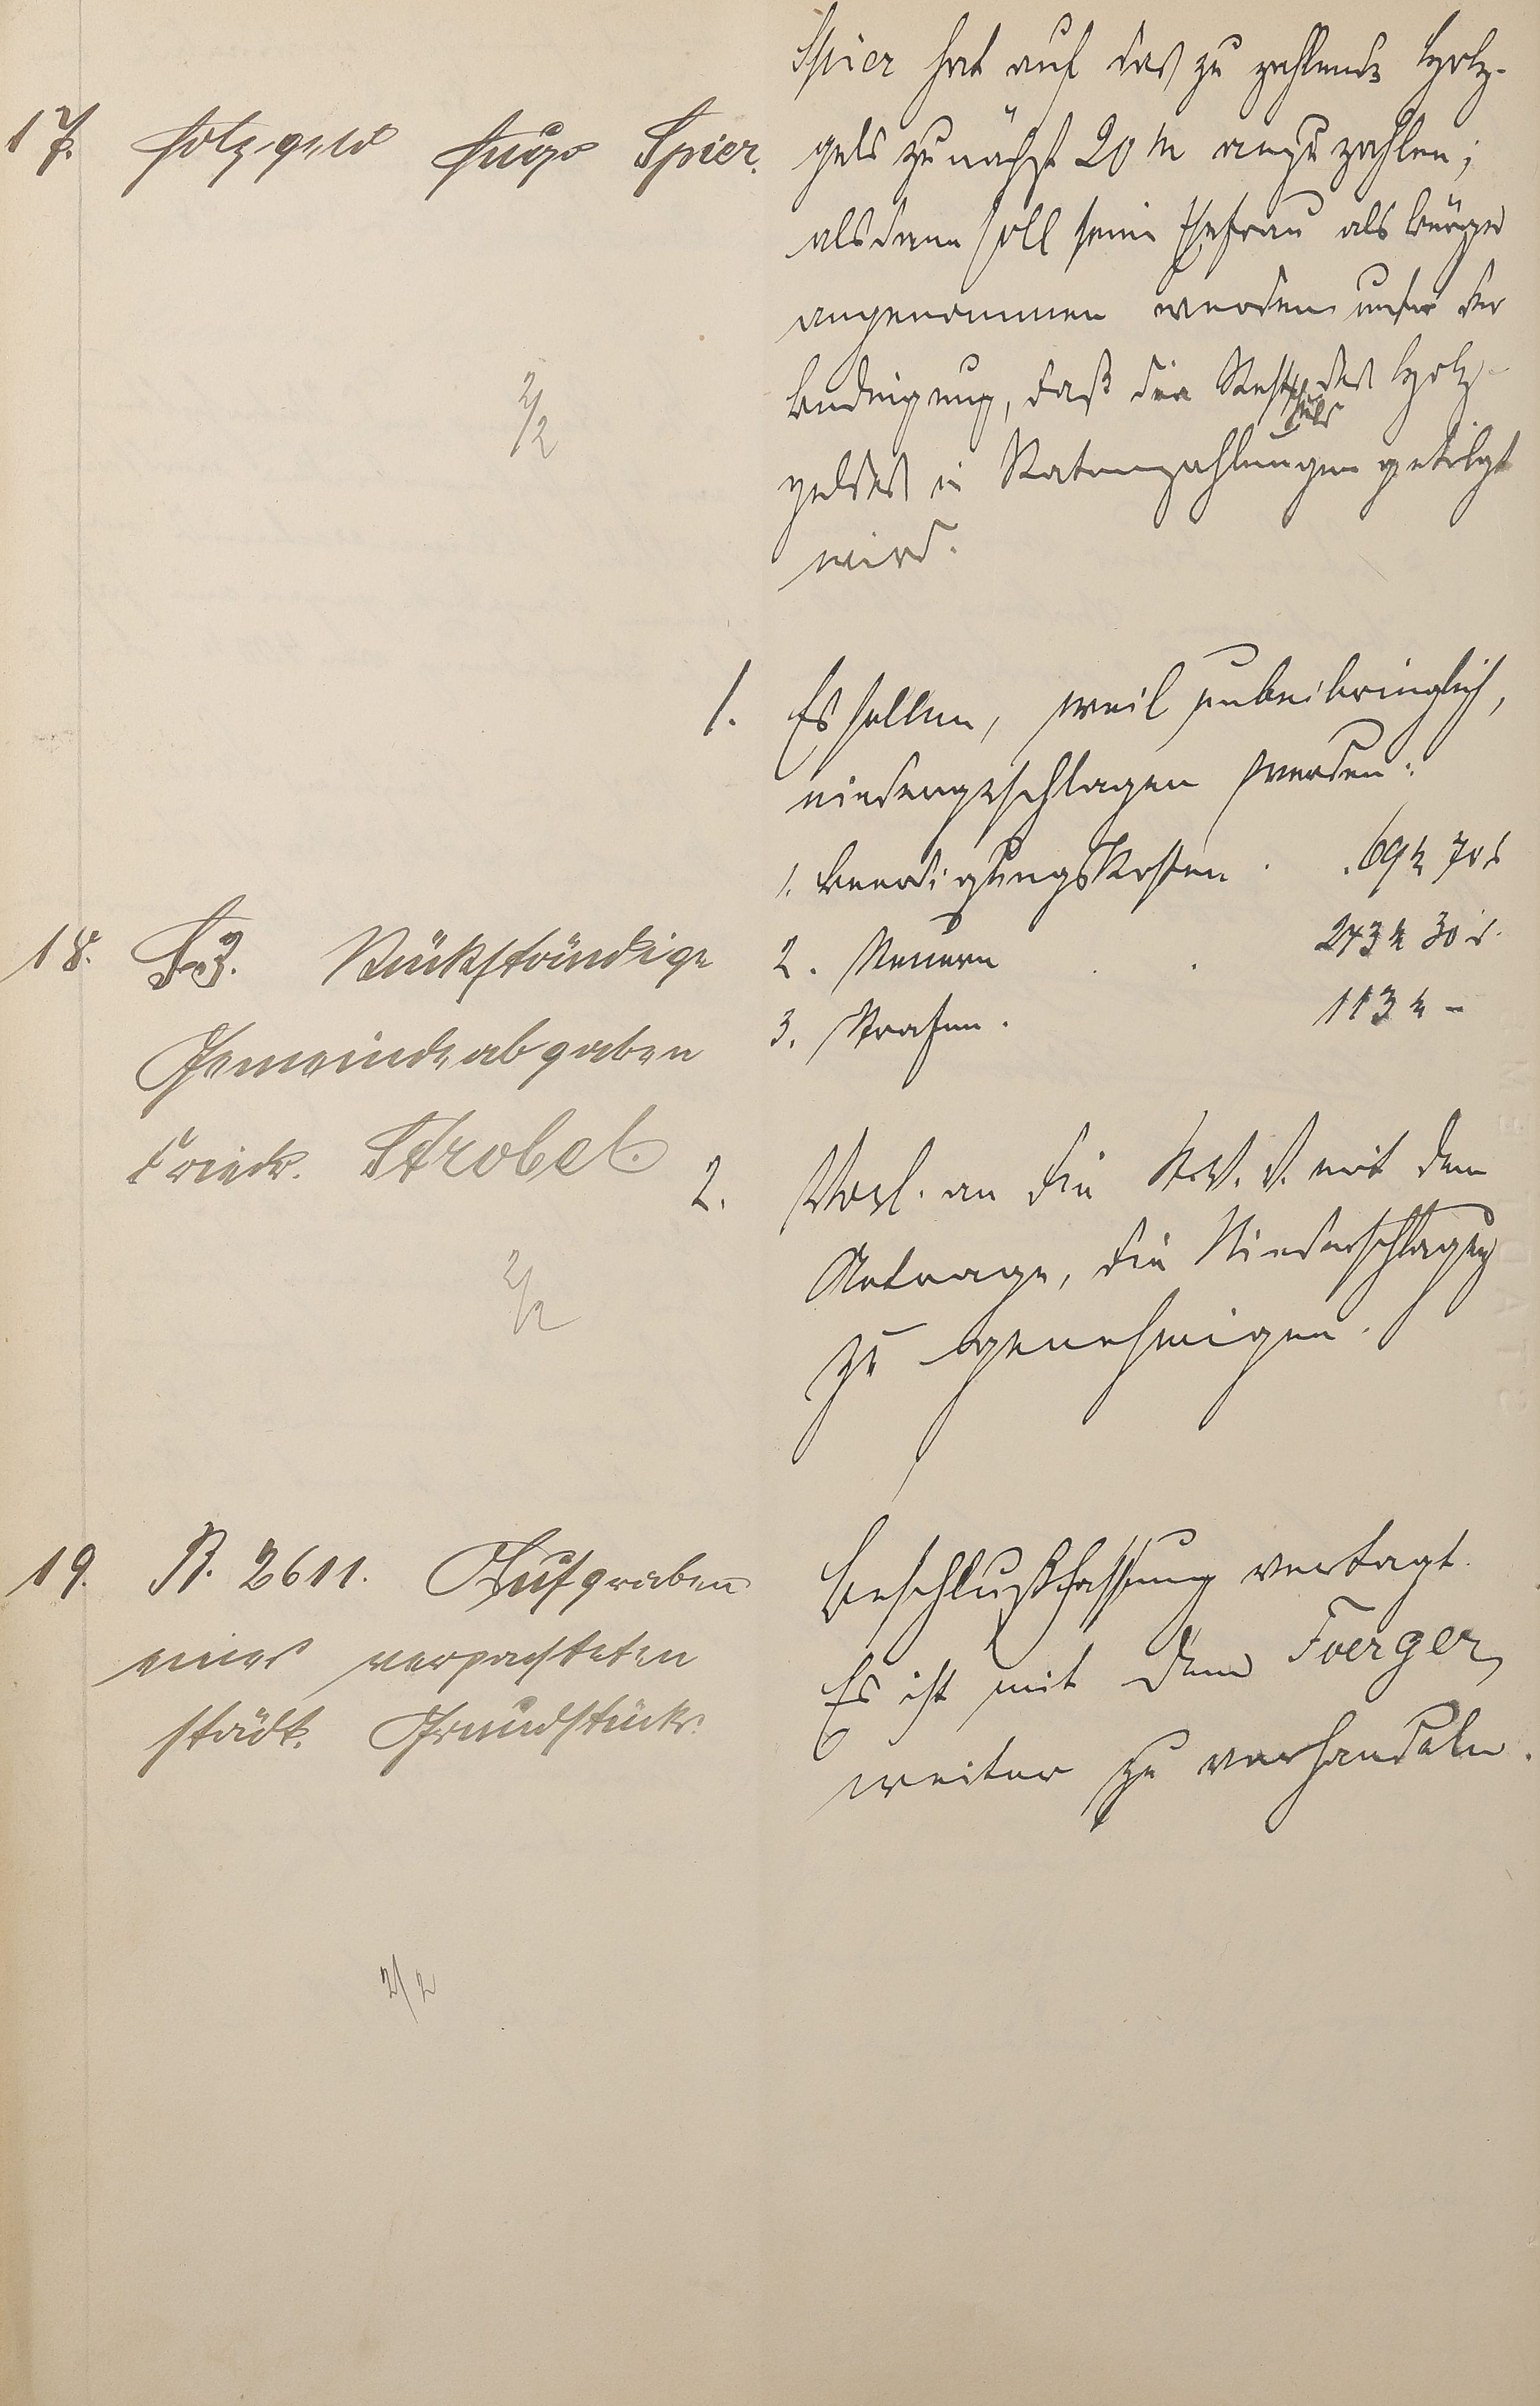 17. Holzgeld Hugo Spier.
Spier hat auf das zu zahlende Holz-
geld zunächst 20 M anzuzahlen;
alsdann soll seine Ehefrau als Bürge
angenommen werden unter der
Bedingung, daß die Rest des Holz-
geldes in Ratenzahlungen getilgt
wird.
2/2
18. Rückständige
Gemeindeabgaben
Friedr. Strobel.
2/2
1. Es sollen, weil unbeibringlich,
niedergeschlagen werden:
1. Beerdigungskosten . . 69 M 70 ₰
2. Steuern . . 243 M 30 ₰
3. Strafen . 113 M –
2. Vorl. an die St. V. V. mit dem
Antrage, die Niederschlagung
zu genehmigen.
19. R. 2611. Aufgraben
eines verpachteten
städt. Grundstücks.
2/2
Beschlußfassung vertagt.
Es ist mit dem Foerger
weiter zu verhandeln.